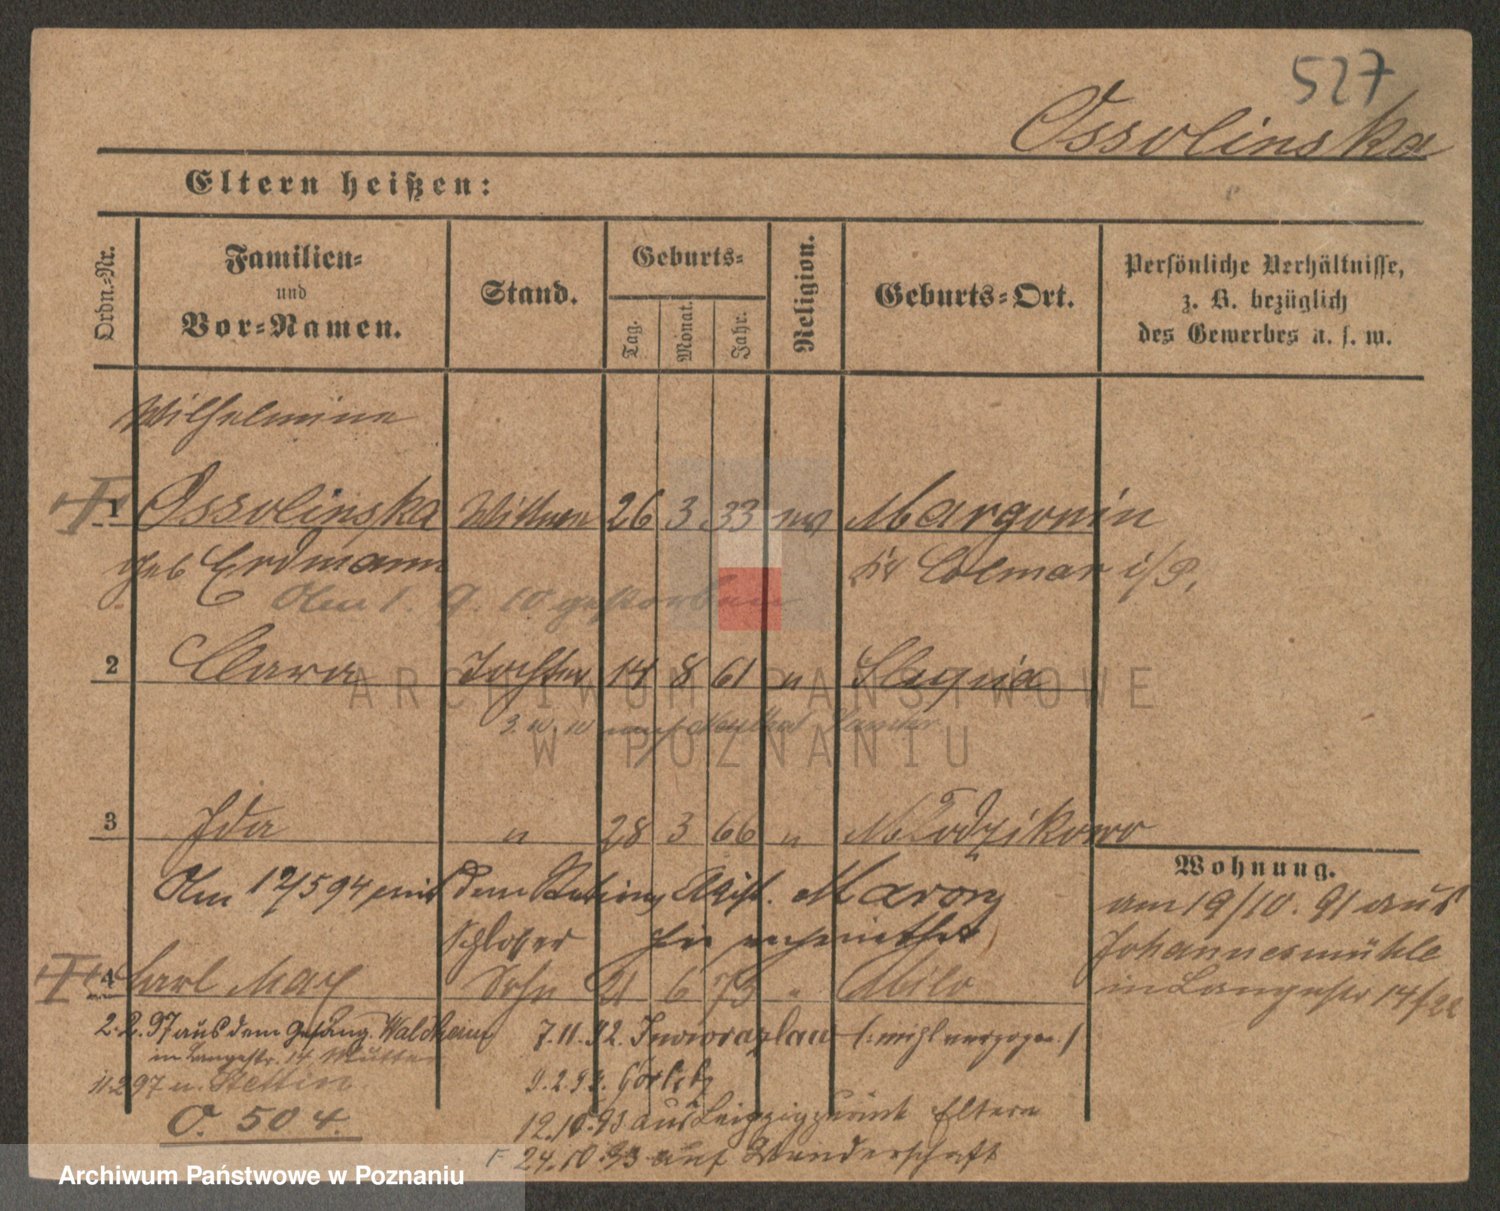 527
Ossolinska
Eltern heißen:
Ordn.-Nr.
Familien-
und
Vor-Namen.
Stand.
Geburts-
Tag.
Monat.
Jahr.
Religion.
Geburts-Ort.
Persönliche Verhältnisse,
z. B. bezüglich
des Gewerbes u. s. w.
Wilhelmine
1 Ossolinska Wittwe 26 3 33 Margonin
geb Erdmann Kr Colmar i/P.
Am 1. 9. 10 gestorben
2 Clara Tochter 14 8 61 "
ARCHIWUM PAŃSTWOWE
W POZNANIU
3 Ida " 28 3 66 " Mlodzikowo
Wohnung.
Am 12/5 94 mit dem
Schlosser hier verheirathet
am 19/10. 91 aus
Johannesmühle
in Langestr 14/
4 Carl Max Sohn 21 6 73 " Milo
2.2.97 aus dem Gefäng. Waldheim
in Langestr. 14 Mutter
11.2.97 n. Stettin
O. 504.
7.11.92. Inowrazlaw
9.2.93. Görlitz
12.10.93 aus Leipzig zurück Eltern
24.10.93 auf Wanderschaft
Archiwum Państwowe w Poznaniu